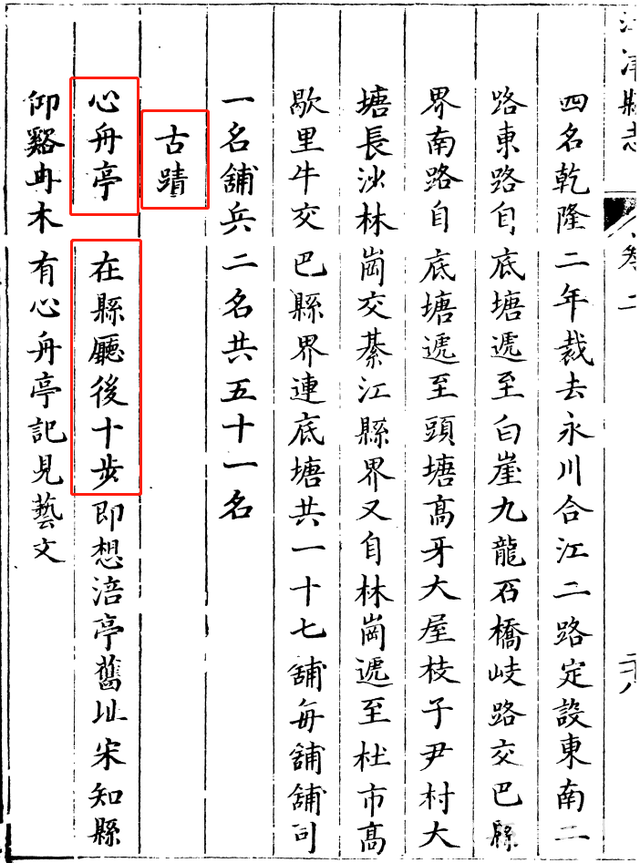 江津縣志
卷二
二八
四名乾隆二年裁去永川合江二路定設東南二
路東路自底塘遞至白崖九龍石橋岐路交巴縣
界南路自底塘遞至頭塘高牙大屋枝子尹村大
塘長沙林崗交綦江縣界又自林崗遞至杜市高
歇里牛交巴縣界連底塘共一十七舖每舖舖司
一名舖兵二名共五十一名
古蹟
心舟亭 在縣廳後十步即想涪亭舊址宋知縣
仰谿冉木有心舟亭記見藝文